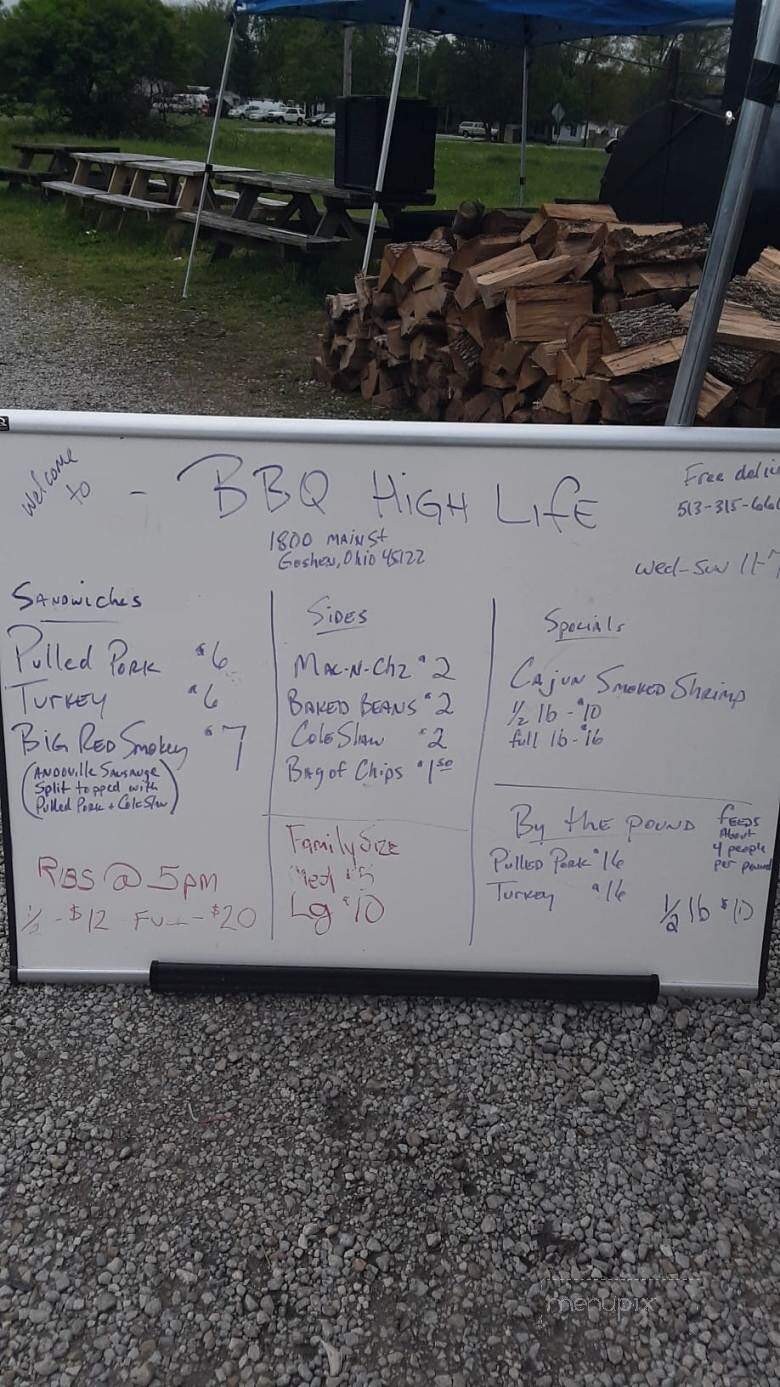 Welcome to - BBQ High Life
1800 Main St
Goshen, Ohio 45122
Free deli
513-315-666
Wed-Sun 11-7
Sandwiches
Pulled Pork $6
Turkey $6
Big Red Smokey $7
(Andoville Sausauge
Split topped with
Pulled Pork + Cole Slaw)
Ribs @ 5pm
1/2 - $12 Full - $20
Sides
Mac-N-Chz $2
Baked Beans $2
Cole Slaw $2
Bag of Chips $1.50
Family Size
Med $5
Lg $10
Specials
Cajun Smoked Shrimp
1/2 lb - $10
full lb - $16
By the pound
feeds
About
4 people
per pound
Pulled Pork $16
Turkey $16
1/2 lb $10
menupix